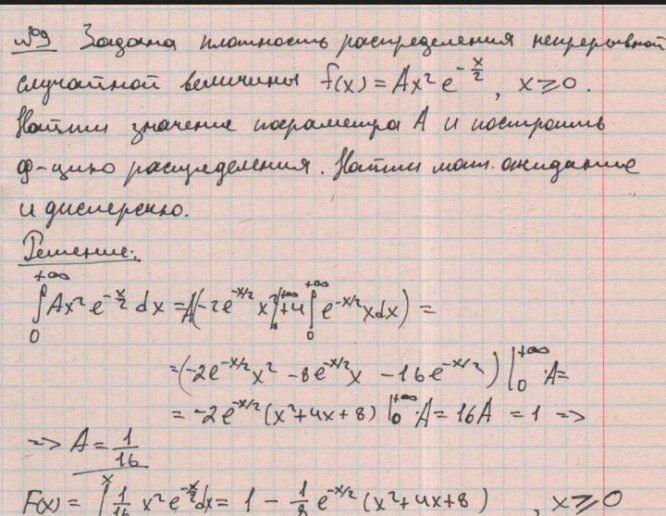 №9 Задана плотность распределения непрерывной
случайной величины f(x) = Ax² e^{-x/2}, x ≥ 0.
Найти значение параметра A и построить
ф-цию распределения. Найти мат. ожидание
и дисперсию.
Решение:
∫₀^{+∞} Ax² e^{-x/2} dx = A(-2e^{-x/2} x² |₀^{+∞} + 4 ∫₀^{+∞} e^{-x/2} x dx) =
= (-2e^{-x/2} x² - 8e^{-x/2} x - 16e^{-x/2}) |₀^{+∞} · A =
= -2e^{-x/2} (x² + 4x + 8) |₀^{+∞} · A = 16A = 1 =>
=> A = 1/16
F(x) = ∫^x 1/16 x² e^{-x/2} dx = 1 - 1/8 e^{-x/2} (x² + 4x + 8) , x ≥ 0